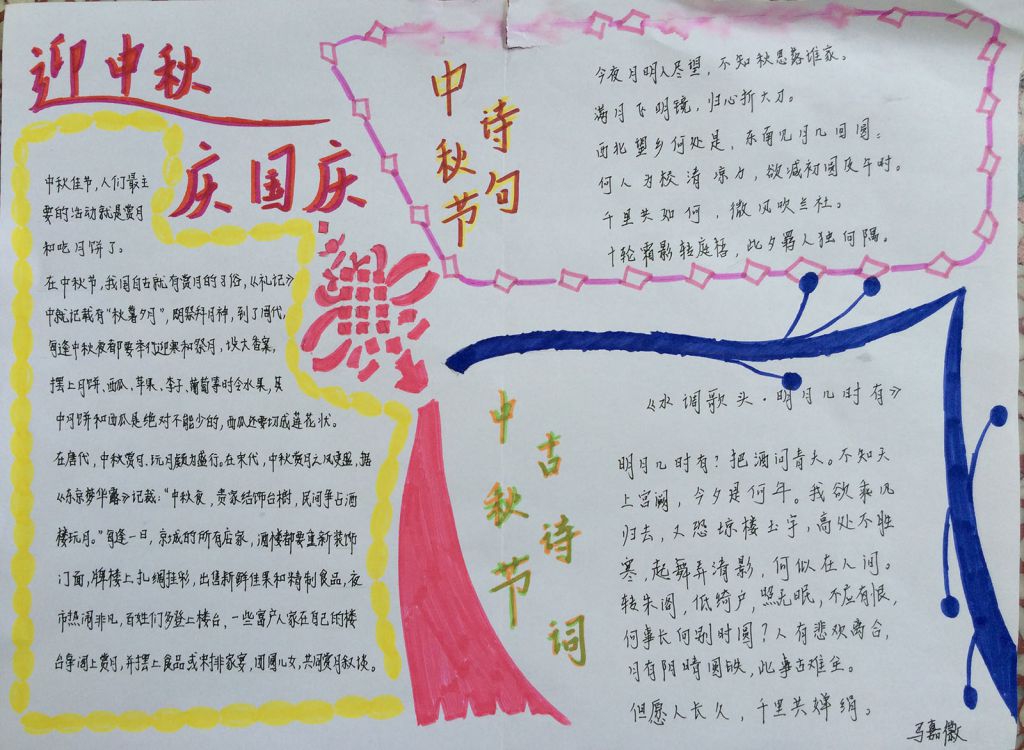 迎中秋
庆国庆
中秋佳节,人们最主
要的活动就是赏月
和吃月饼了。
在中秋节,我国自古就有赏月的习俗,《礼记》
中就记载有“秋暮夕月”,即祭拜月神,到了周代,
每逢中秋夜都要举行迎寒和祭月,设大香案,
摆上月饼、西瓜、苹果、李子、葡萄等时令水果,其
中月饼和西瓜是绝对不能少的,西瓜还要切成莲花状。
在唐代,中秋赏月、玩月颇为盛行。在宋代,中秋赏月之风更盛,据
《东京梦华露》记载:“中秋夜,贵家结饰台榭,民间争占酒
楼玩月。”每逢一日,京城的所有店家,酒楼都要重新装饰
门面,牌楼上扎绸挂彩,出售新鲜佳果和精制食品,夜
市热闹非凡,百姓们多登上楼台,一些富户人家在自己的楼
台亭阁上赏月,并摆上食品或安排家宴,团圆儿女,共同赏月叙谈。
中秋节
诗句
今夜月明人尽望,不知秋思落谁家。
满月飞明镜,归心折大刀。
西北望乡何处是,东南见月几回圆。
何人为校清凉力,欲减初圆及午时。
千里共如何,微风吹兰杜。
十轮霜影转庭梧,此夕羁人独向隅。
中秋节
古诗词
《水调歌头·明月几时有》
明月几时有?把酒问青天。不知天
上宫阙,今夕是何年。我欲乘风
归去,又恐琼楼玉宇,高处不胜
寒,起舞弄清影,何似在人间。
转朱阁,低绮户,照无眠,不应有恨,
何事长向别时圆?人有悲欢离合,
月有阴晴圆缺,此事古难全。
但愿人长久,千里共婵娟。
马嘉徽